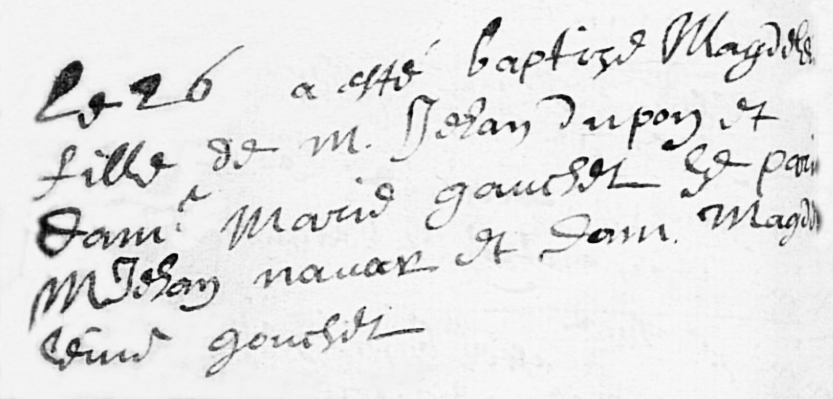 Le 26 a esté baptizé Magdele
fille de M. Jehan Dupon et
dam.e Marie gauchet Le pari
M Jehan navar et dam. Magd
Leine gouchet